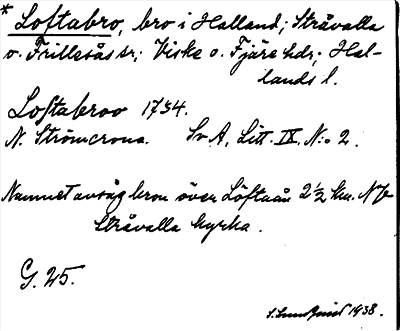 * Loftabro, bro i Halland; Stråvalla
o. Frillesås sr; Viske o. Fjäre hdr; Hal-
lands l.
Loftabroo 1754.
N. Strömcrona. Sv A, Litt. IX, N:o 2.
Namnet avsåg bron över Löftaån 2½ km. N
Stråvalla kyrka.
G. 25.
1938.